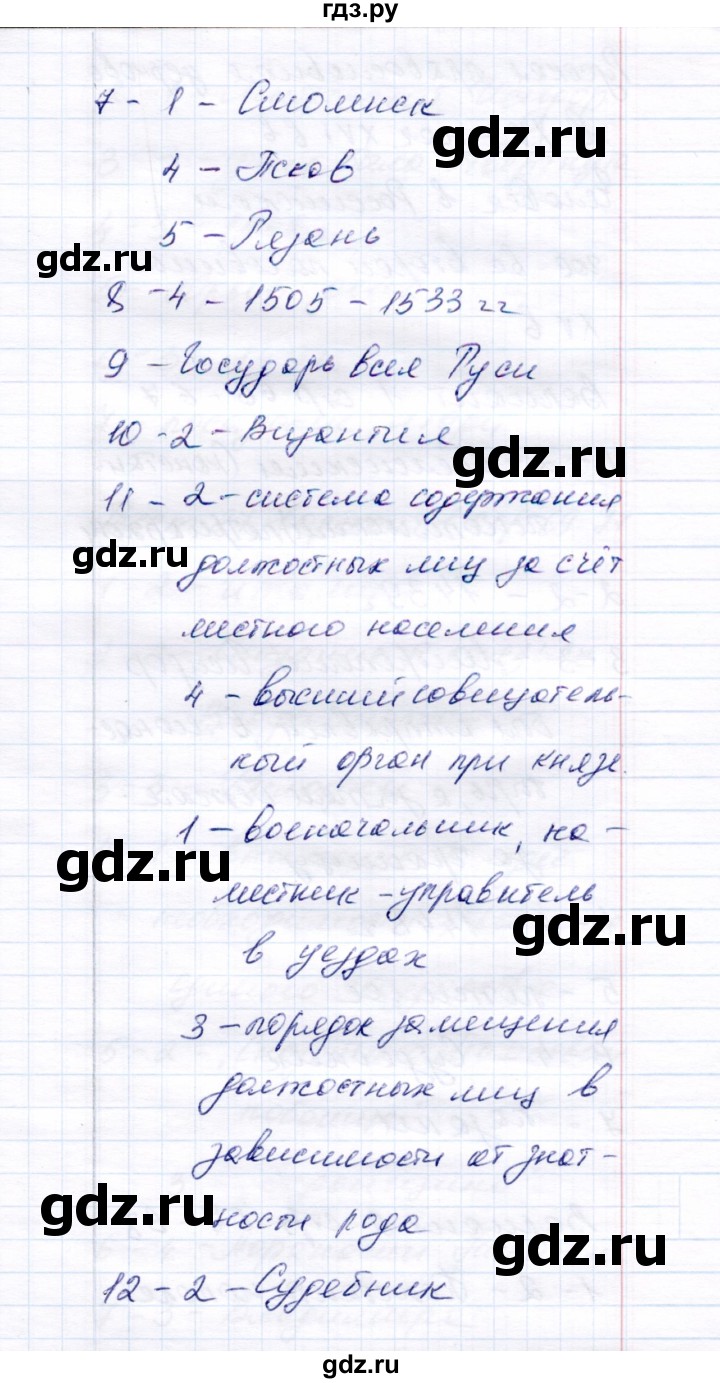 гдз.ру
7 - 1 - Смоленск
gdz.ru
4 - Псков
5 - Рязань
gdz.ru
8 - 4 - 1505 - 1533 гг
9 - Государь всея Руси
10 - 2 - Византия
gdz.ru
11 - 2 - система содержания
gdz.ru
должностных лиц за счёт
местного населения
4 - высший совещатель-
ный орган при князе.
1 - военачальник, на-
gdz.ru
местник - управитель
gdz.ru
в уездах
3 - порядок замещения
должностных лиц в
зависимости от знат-
gdz.ru
ности рода
gdz.ru
12 - 2 - Судебник
gdz.ru